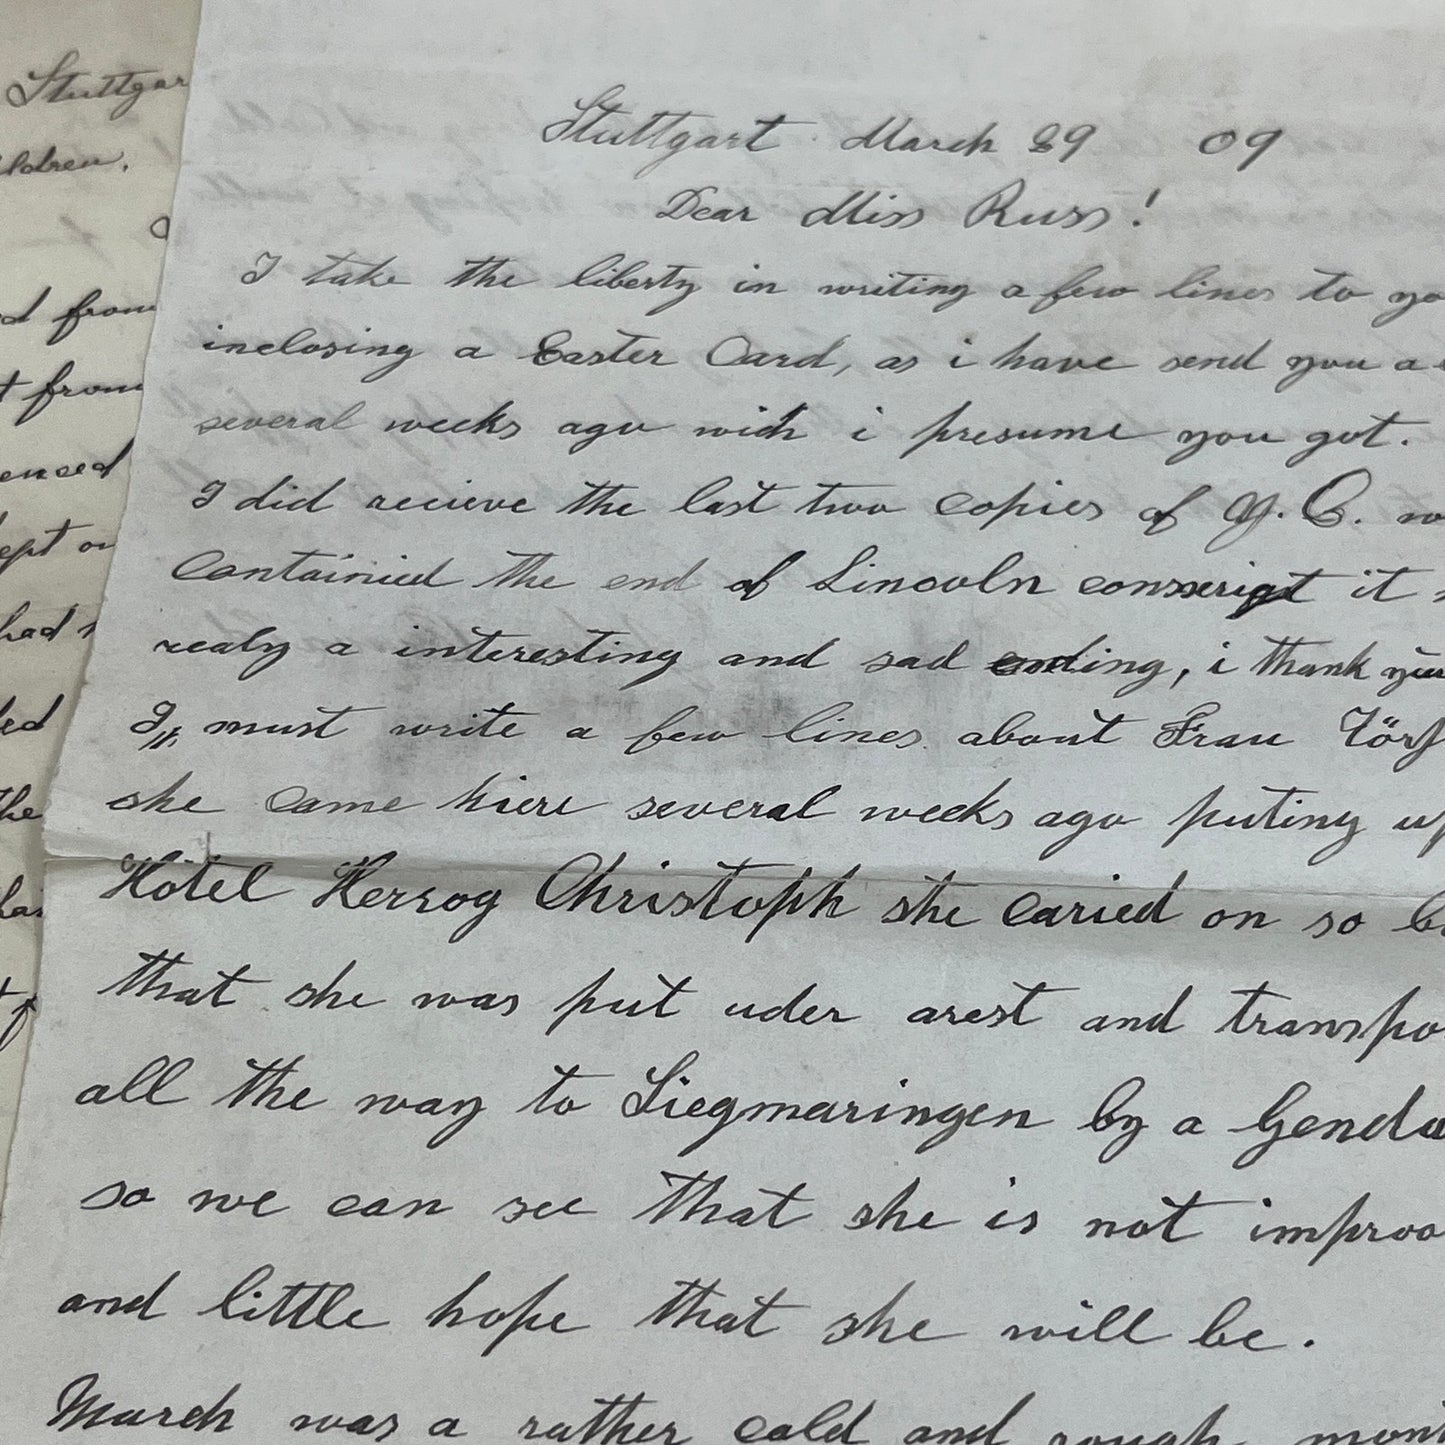 Stuttgar
ldren.
d from
t from
enced
ept on
had
ed
the
has
Stuttgart March 29 09
Dear Miss Russ!
I take the liberty in writing a few lines to yo
inclosing a Easter Card, as i have send you a
several weeks ago wich i presume you got.
I did recieve the last two copies of Y. C. w
Containied the end of Lincoln it
realy a interesting and sad ending, i thank you
I must write a few lines about Frau
she came hiere several weeks ago puting up
Hotel Herzog Christoph she caried on so b
that she was put uder arest and transpo
all the way to Siegmaringen by a Genda
so we can see that she is not improo
and little hope that she will be.
March was a rather cold and rough mont